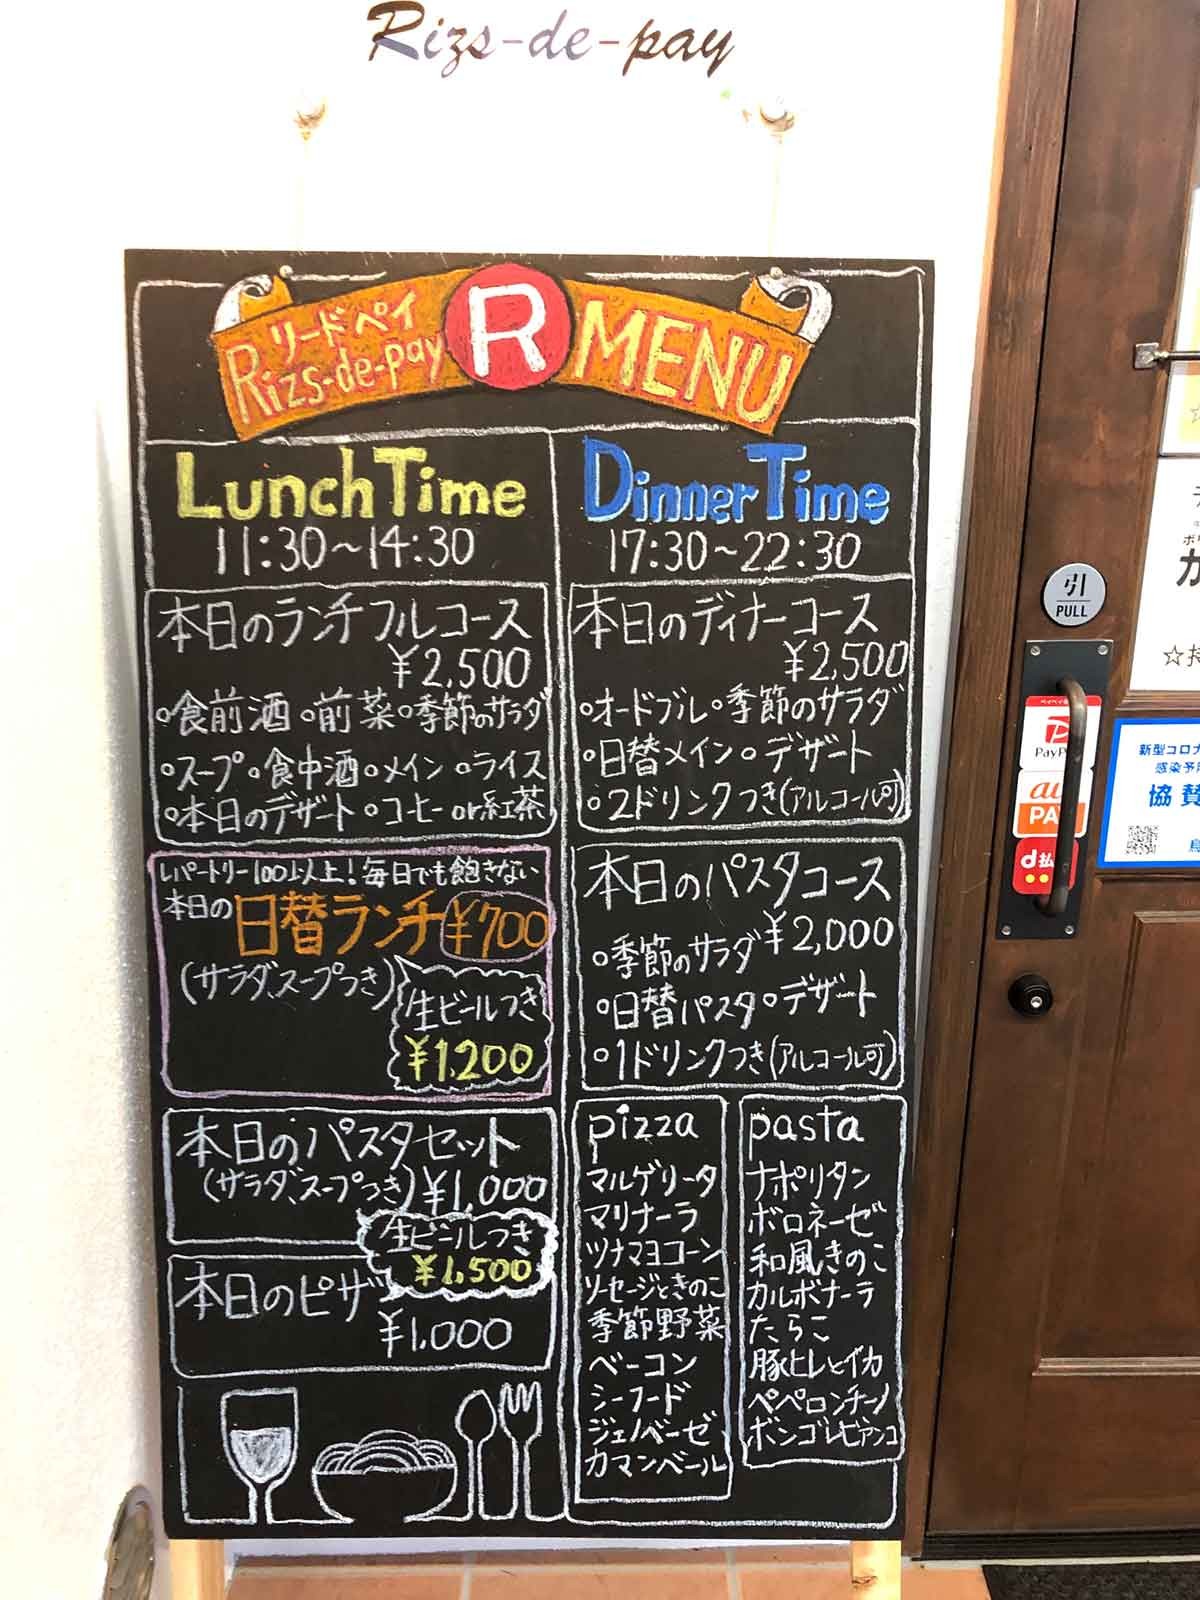 Rizs-de-pay
リードペイ
Rizs-de-pay
R
MENU
Lunch Time
11:30~14:30
本日のランチフルコース
¥2,500
○食前酒 ○前菜 ○季節のサラダ
○スープ ○食中酒 ○メイン ○ライス
○本日のデザート ○コーヒー or 紅茶
レパートリー100以上!毎日でも飽きない
本日の日替ランチ ¥700
(サラダ、スープつき)
生ビールつき
¥1,200
本日のパスタセット
(サラダ、スープつき) ¥1,000
生ビールつき
¥1,500
本日のピザ
¥1,000
Dinner Time
17:30~22:30
本日のディナーコース
¥2,500
○オードブル ○季節のサラダ
○日替メイン ○デザート
○2ドリンクつき(アルコール可)
本日のパスタコース
¥2,000
○季節のサラダ
○日替パスタ ○デザート
○1ドリンクつき(アルコール可)
pizza
マルゲリータ
マリナーラ
ツナマヨコーン
ソーセージときのこ
季節野菜
ベーコン
シーフード
ジェノベーゼ
カマンベール
pasta
ナポリタン
ボロネーゼ
和風きのこ
カルボナーラ
たらこ
豚ヒレとイカ
ペペロンチーノ
ボンゴレビアンコ
引
PULL
PayP
au
PAY
d払
新型コロナ
感染予
協賛
☆持